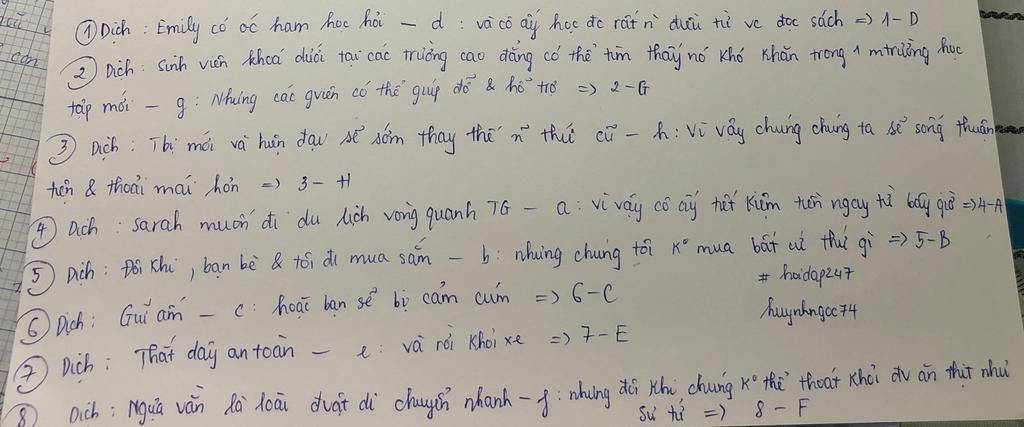 ① Dịch : Emily có óc ham học hỏi – d : và cô ấy học đc rất n` điều từ vc đọc sách => 1 - D
② Dịch : Sinh viên khoá dưới tại các trường cao đẳng có thể tìm thấy nó khó khăn trong 1 mtrường học
tập mới – g : Nhưng các gviên có thể giúp đỡ & hỗ trợ => 2 - G
③ Dịch : Tbị mới và hiện đại sẽ sớm thay thế n~ thứ cũ – h : Vì vậy chúng chúng ta sẽ sống thuận
tiện & thoải mái hơn => 3 - H
④ Dịch : Sarah muốn đi du lịch vòng quanh TG – a : vì vậy cô ấy tiết kiệm tiền ngay từ bây giờ => 4 - A
⑤ Dịch : Đôi khi, bạn bè & tôi đi mua sắm – b : nhưng chúng tôi k° mua bất cứ thứ gì => 5 - B
# hoidap247
⑥ Dịch : Giữ ấm – c : hoặc bạn sẽ bị cảm cúm => 6 - C
huynhngoc74
⑦ Dịch : Thắt dây an toàn – e : và rời khỏi xe => 7 - E
⑧ Dịch : Ngựa vằn là loài đvật di chuyển nhanh – f : nhưng đôi khi, chúng k° thể thoát khỏi đv ăn thịt như
sư tử => 8 - F